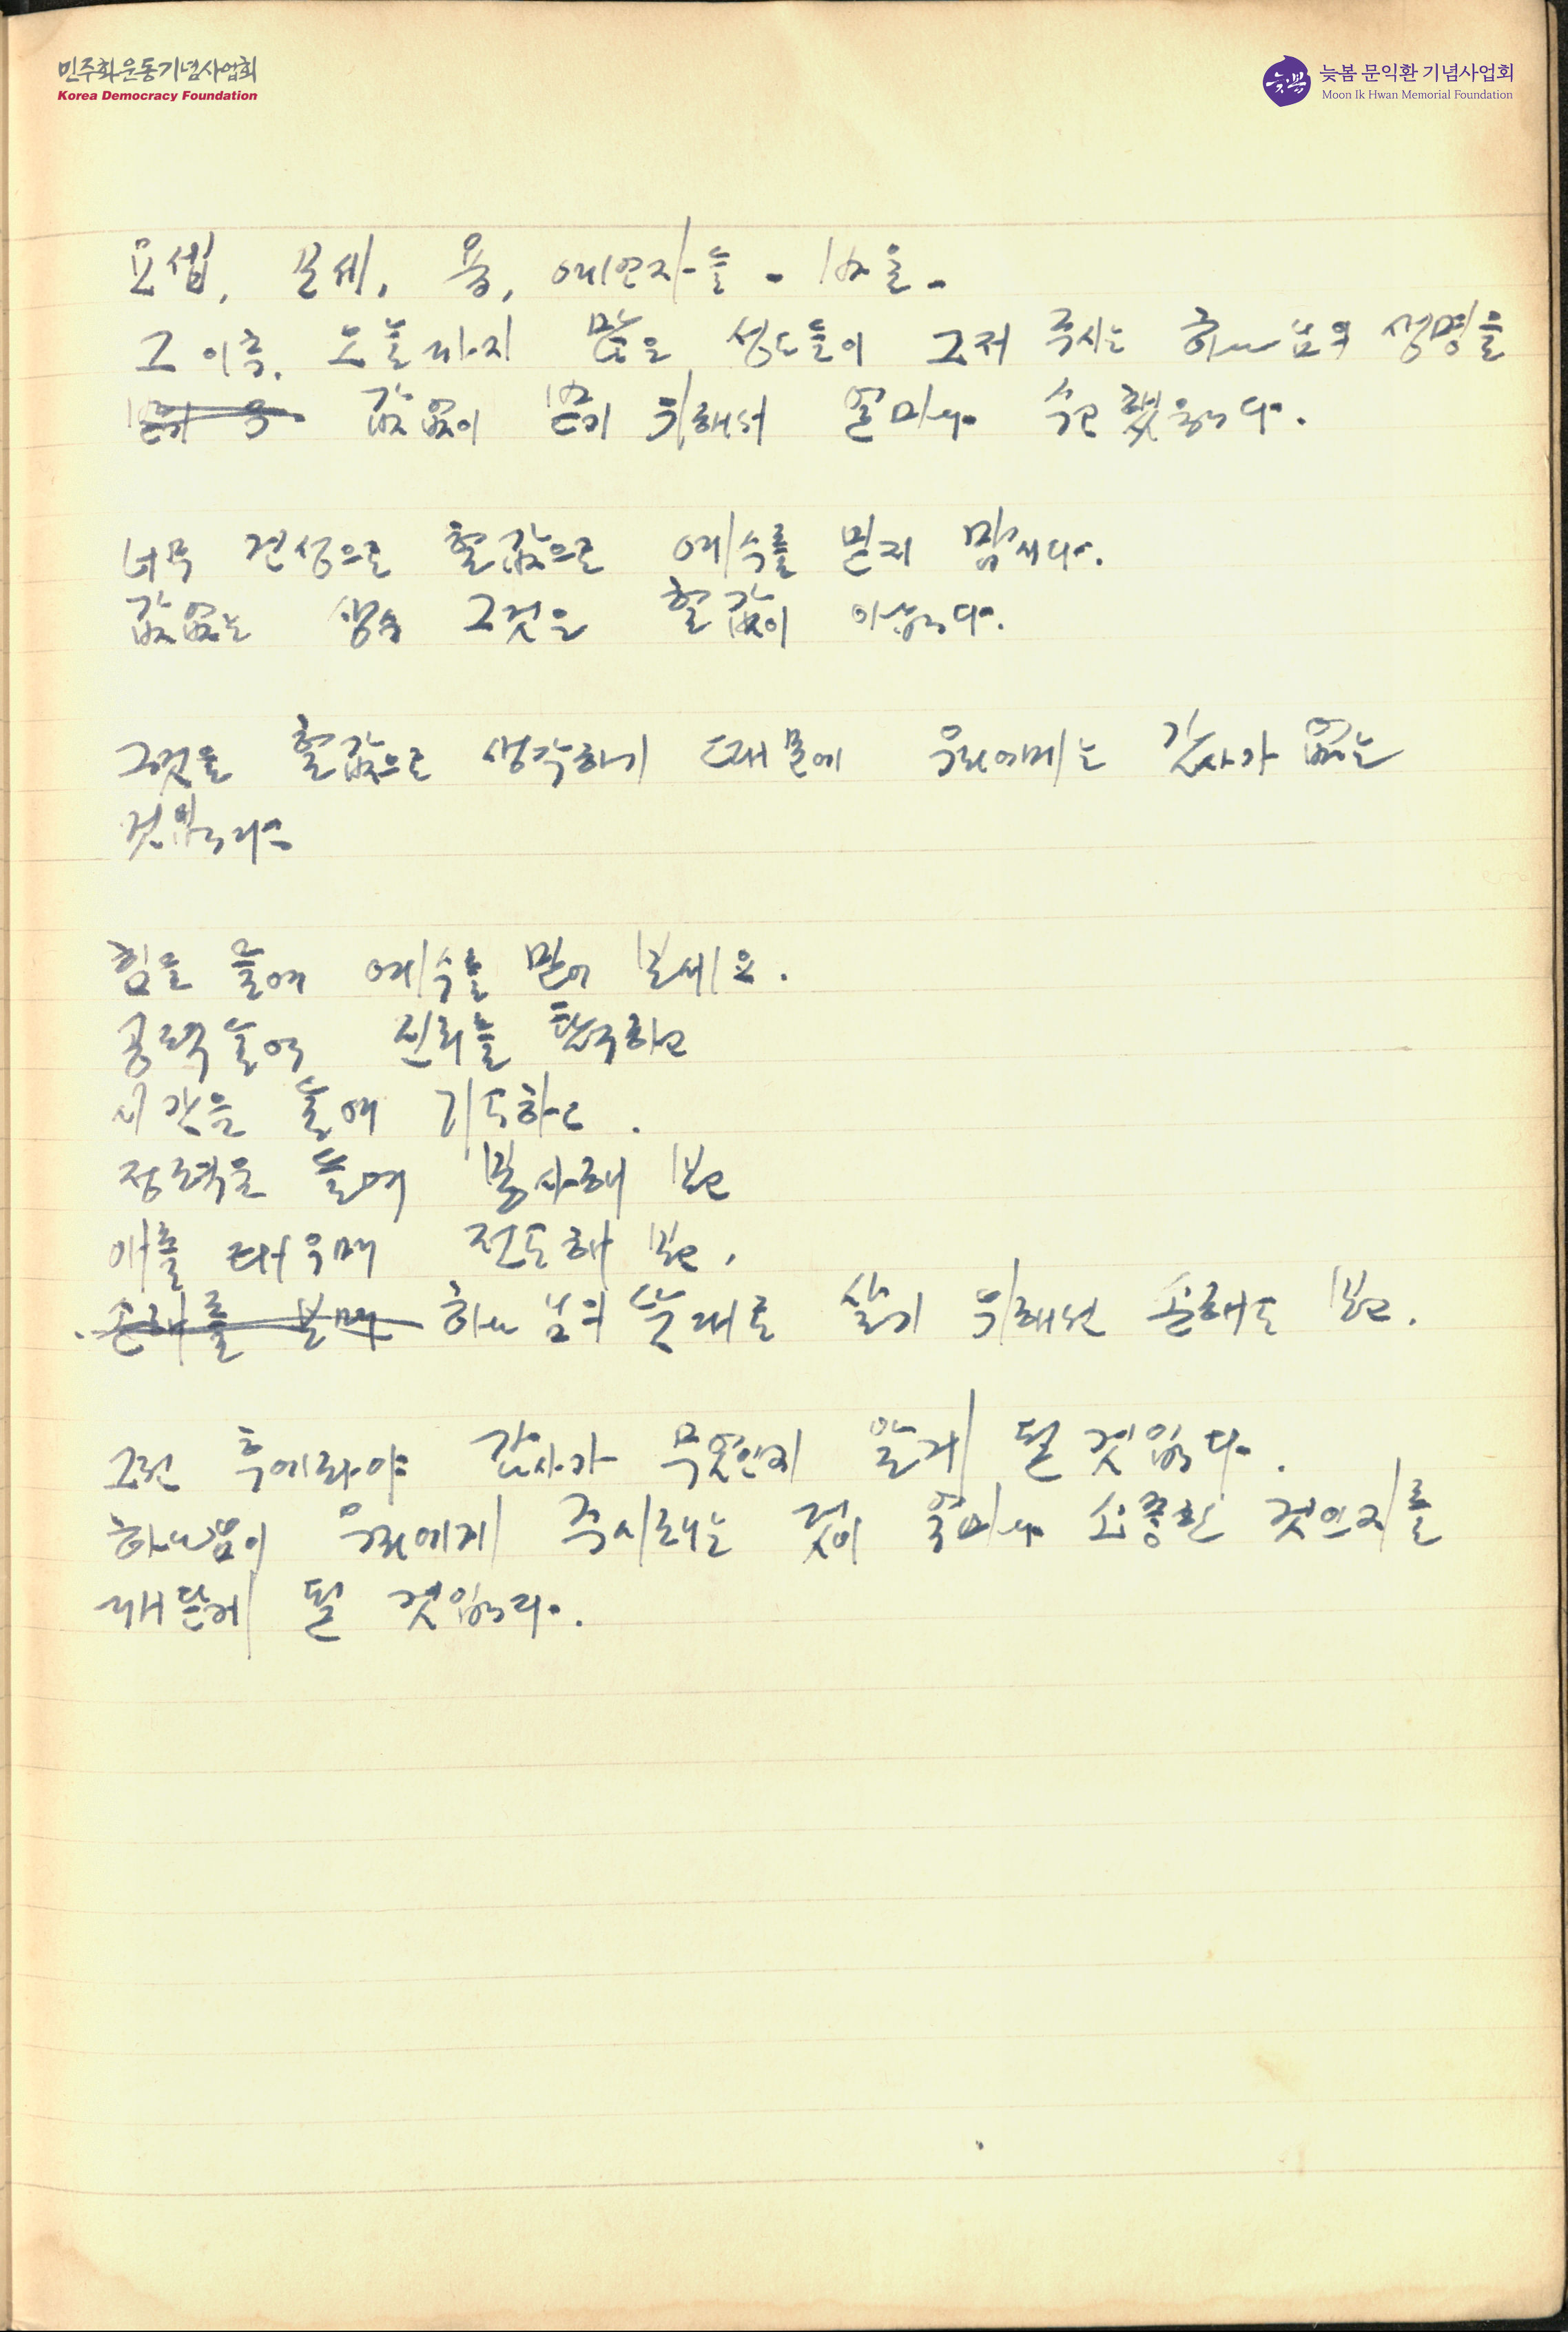 민주화운동기념사업회
Korea Democracy Foundation
늦봄 문익환 기념사업회
Moon Ik Hwan Memorial Foundation
요셉, 모세, 욥, 예언자들 - 바울 -
그 이후, 오늘까지 많은 성도들이 그저 주시는 하나님의 생명을
받기 위 값없이 받기 위해서 얼마나 수고했읍니다.
너무 건성으로 헐값으로 예수를 믿지 맙시다.
값없는 생수 그것은 헐값이 아닙니다.
그것을 헐값으로 생각하기 때문에 우리에게는 감사가 없는
것입니다
힘을 들여 예수를 믿어 보세요.
공력 들여 진리를 탐구하고
시간을 들여 기도하고.
정력을 들여 봉사해 보고
애를 태우며 전도해 보고,
손해를 보며 하나님의 뜻대로 살기 위해선 손해도 보고.
그런 후에라야 감사가 무엇인지 알게 될 것입니다.
하나님이 우리에게 주시려는 것이 얼마나 소중한 것인지를
깨닫게 될 것입니다.